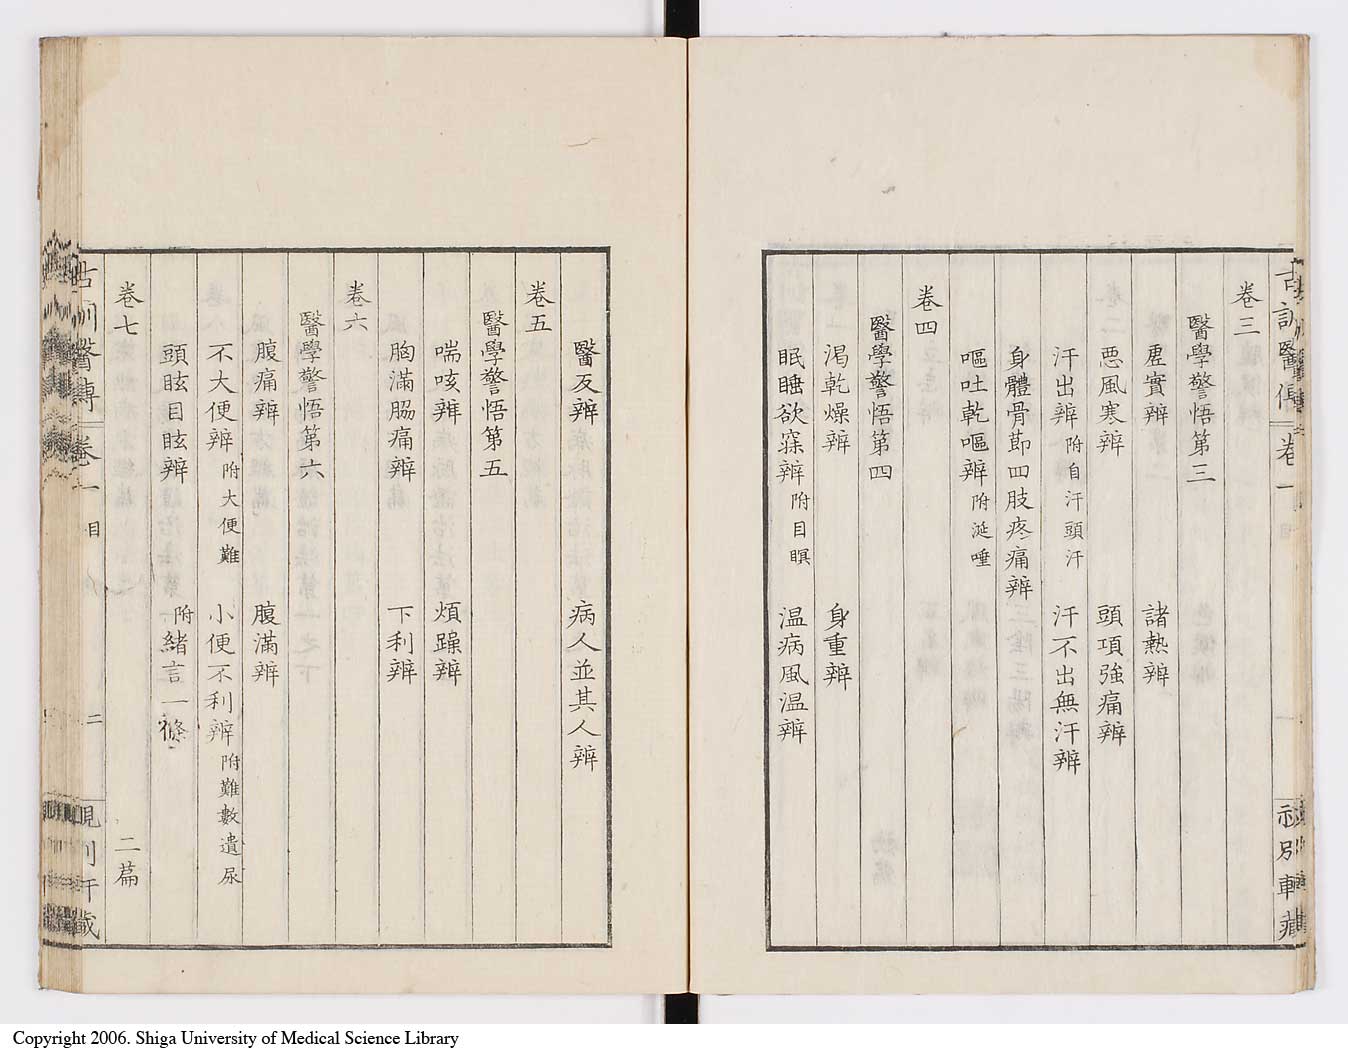 卷三
醫學警悟第三
虛實辨 諸熱辨
惡風寒辨 頭項強痛辨
汗出辨 附自汗頭汗 汗不出無汗辨
身體骨節四肢疼痛辨
嘔吐乾嘔辨 附涎唾
卷四
醫學警悟第四
渴乾燥辨 身重辨
眠睡欲寐辨 附目瞑 温病風温辨
醫反辨 病人並其人辨
卷五
醫學警悟第五
喘咳辨 煩躁辨
胸滿脇痛辨 下利辨
卷六
醫學警悟第六
腹痛辨 腹滿辨
不大便辨 附大便難 小便不利辨 附難數遺尿
頭眩目眩辨 附緒言一條
卷七 二篇
古訓醫傳 卷一 目 二
Copyright 2006. Shiga University of Medical Science Library